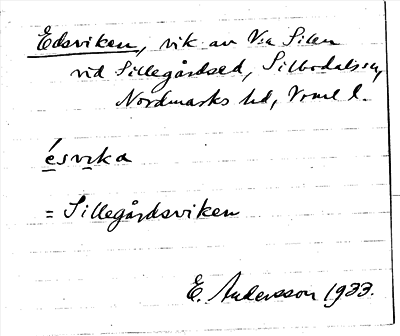 Edsviken, vik av V:a Silen
vid Sillegårdsed, Silbodals sn,
Nordmarks hd, Vrml l.
ésvika
= Sillegårdsviken
E. Andersson 1933.